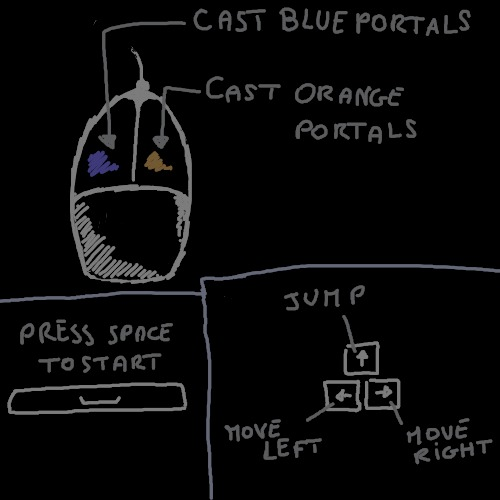 CAST BLUE PORTALS
CAST ORANGE
PORTALS
PRESS SPACE
TO START
JUMP
MOVE
LEFT
MOVE
RIGHT